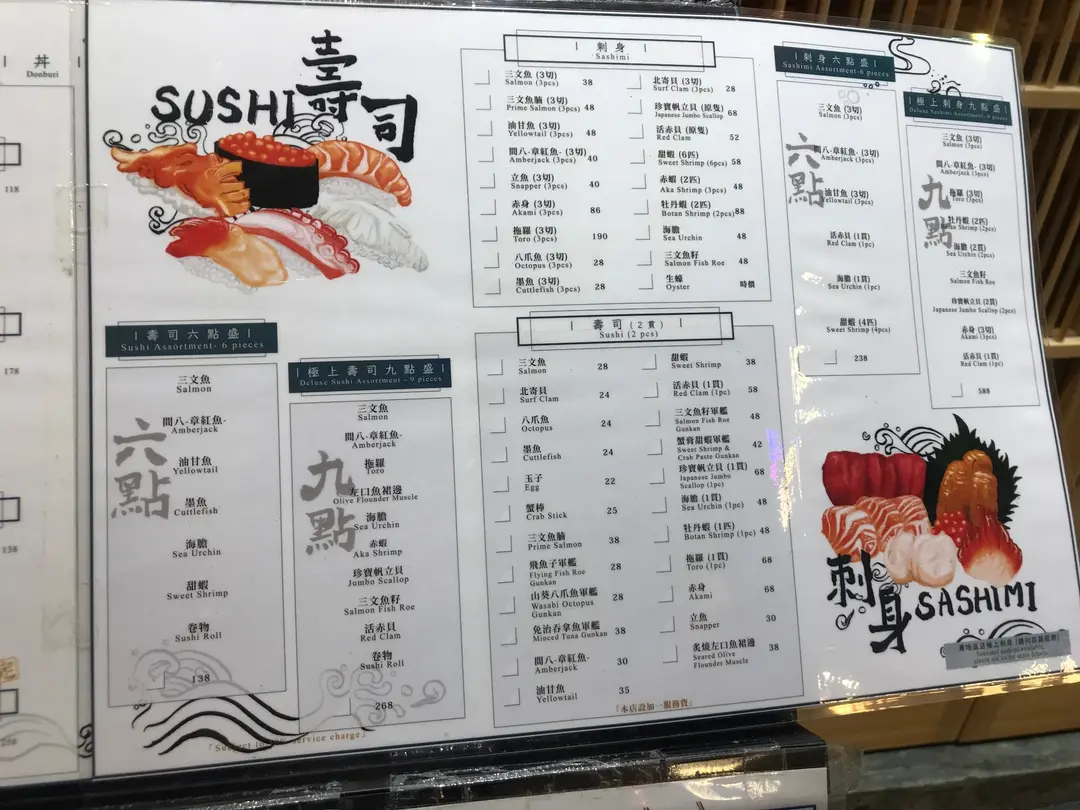 丼
Donburi
118
178
138
268
SUSHI 壽司
壽司六點盛
Sushi Assortment- 6 pieces
六點
三文魚
Salmon
間八-章紅魚-
Amberjack
油甘魚
Yellowtail
墨魚
Cuttlefish
海膽
Sea Urchin
甜蝦
Sweet Shrimp
卷物
Sushi Roll
138
極上壽司九點盛
Deluxe Sushi Assortment - 9 pieces
九點
三文魚
Salmon
間八-章紅魚-
Amberjack
拖羅
Toro
左口魚裙邊
Olive Flounder Muscle
海膽
Sea Urchin
赤蝦
Aka Shrimp
珍寶帆立貝
Jumbo Scallop
三文魚籽
Salmon Fish Roe
活赤貝
Red Clam
卷物
Sushi Roll
268
service charge」
刺身
Sashimi
三文魚 (3切) 38
Salmon (3pcs)
三文魚腩 (3切) 48
Prime Salmon (3pcs)
油甘魚 (3切) 48
Yellowtail (3pcs)
間八-章紅魚- (3切) 40
Amberjack (3pcs)
立魚 (3切) 40
Snapper (3pcs)
赤身 (3切) 86
Akami (3pcs)
拖羅 (3切) 190
Toro (3pcs)
八爪魚 (3切) 28
Octopus (3pcs)
墨魚 (3切) 28
Cuttlefish (3pcs)
北寄貝 (3切) 28
Surf Clam (3pcs)
珍寶帆立貝 (原隻) 68
Japanese Jumbo Scallop
活赤貝 (原隻) 52
Red Clam
甜蝦 (6匹) 58
Sweet Shrimp (6pcs)
赤蝦 (2匹) 48
Aka Shrimp (3pcs)
牡丹蝦 (2匹) 88
Botan Shrimp (2pcs)
海膽 48
Sea Urchin
三文魚籽 48
Salmon Fish Roe
生蠔 時價
Oyster
壽司 (2貫)
Sushi (2 pcs)
三文魚 28
Salmon
北寄貝 24
Surf Clam
八爪魚 24
Octopus
墨魚 24
Cuttlefish
玉子 22
Egg
蟹棒 25
Crab Stick
三文魚腩 38
Prime Salmon
飛魚子軍艦 28
Flying Fish Roe
Gunkan
山葵八爪魚軍艦 28
Wasabi Octopus
Gunkan
免治吞拿魚軍艦 38
Minced Tuna Gunkan
間八-章紅魚- 30
Amberjack
油甘魚 35
Yellowtail
甜蝦 38
Sweet Shrimp
活赤貝 (1貫) 58
Red Clam (1pc)
三文魚籽軍艦 48
Salmon Fish Roe
Gunkan
蟹膏甜蝦軍艦 42
Sweet Shrimp &
Crab Paste Gunkan
珍寶帆立貝 (1貫) 68
Japanese Jumbo
Scallop (1pc)
海膽 (1貫) 48
Sea Urchin (1pc)
牡丹蝦 (1匹) 48
Botan Shrimp (1pc)
拖羅 (1貫) 68
Toro (1pc)
赤身 68
Akami
立魚 30
Snapper
炙燒左口魚裙邊 38
Seared Olive
Flounder Muscle
「本店設加一服務費」
刺身六點盛
Sashimi Assortment-6 pieces
六點
三文魚 (3切)
Salmon (3pcs)
間八-章紅魚- (3切)
Amberjack (3pcs)
油甘魚 (3切)
Yellowtail (3pcs)
活赤貝 (1貫)
Red Clam (1pc)
海膽 (1貫)
Sea Urchin (1pc)
甜蝦 (4匹)
Sweet Shrimp (4pcs)
238
極上刺身九點盛
Deluxe Sashimi Assortment-9 pieces
九點
三文魚 (3切)
Salmon (3pcs)
間八-章紅魚- (3切)
Amberjack (3pcs)
拖羅 (3切)
Toro (3pcs)
牡丹蝦 (2匹)
Shrimp (2pcs)
海膽 (2貫)
Sea Urchin (2pc)
三文魚籽
Salmon Fish Roe
珍寶帆立貝 (2貫)
Japanese Jumbo Scallop (2pcs)
赤身 (3切)
Akami (3pcs)
活赤貝 (1貫)
Red Clam (1pc)
588
刺身 SASHIMI